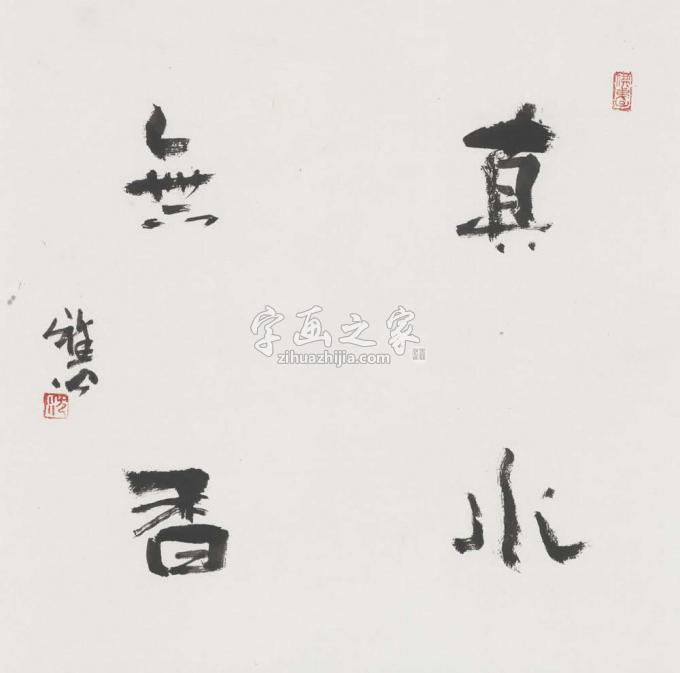 真水
無香
字画之家
zihuazhijia.com